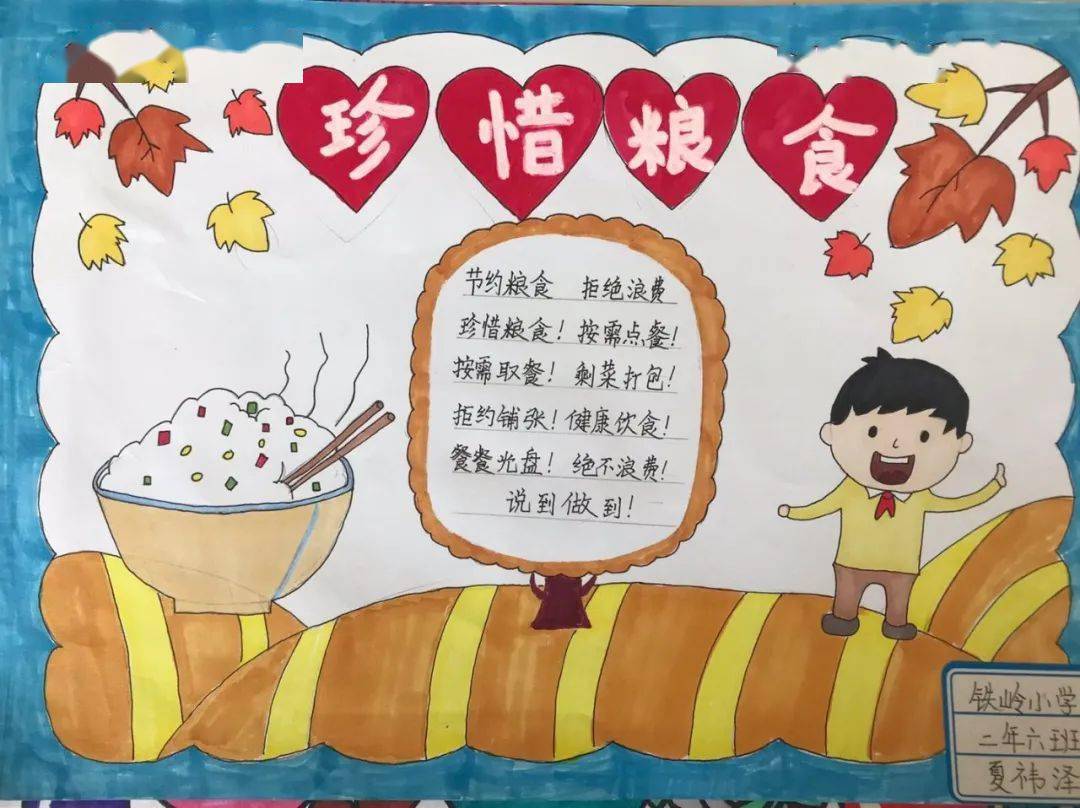 珍惜粮食
节约粮食 拒绝浪费
珍惜粮食！按需点餐！
按需取餐！剩菜打包！
拒约铺张！健康饮食！
餐餐光盘！绝不浪费！
说到做到！
铁岭小学
二年六班
夏祎泽